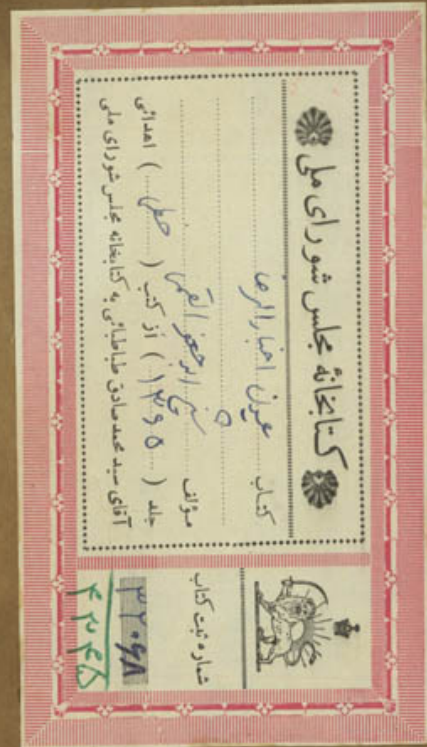 کتابخانهٔ مجلس شورای ملی
کتاب عیون اخبار الرضا
مؤلف شیخ ابو جعفر القمی
جلد (۱۳۶۵) از کتب (خطی) اهدائی
آقای سید محمد صادق طباطبائی به کتابخانه مجلس شورای ملی
شماره ثبت کتاب
۳۲۰۶۸
۴۳۴۵